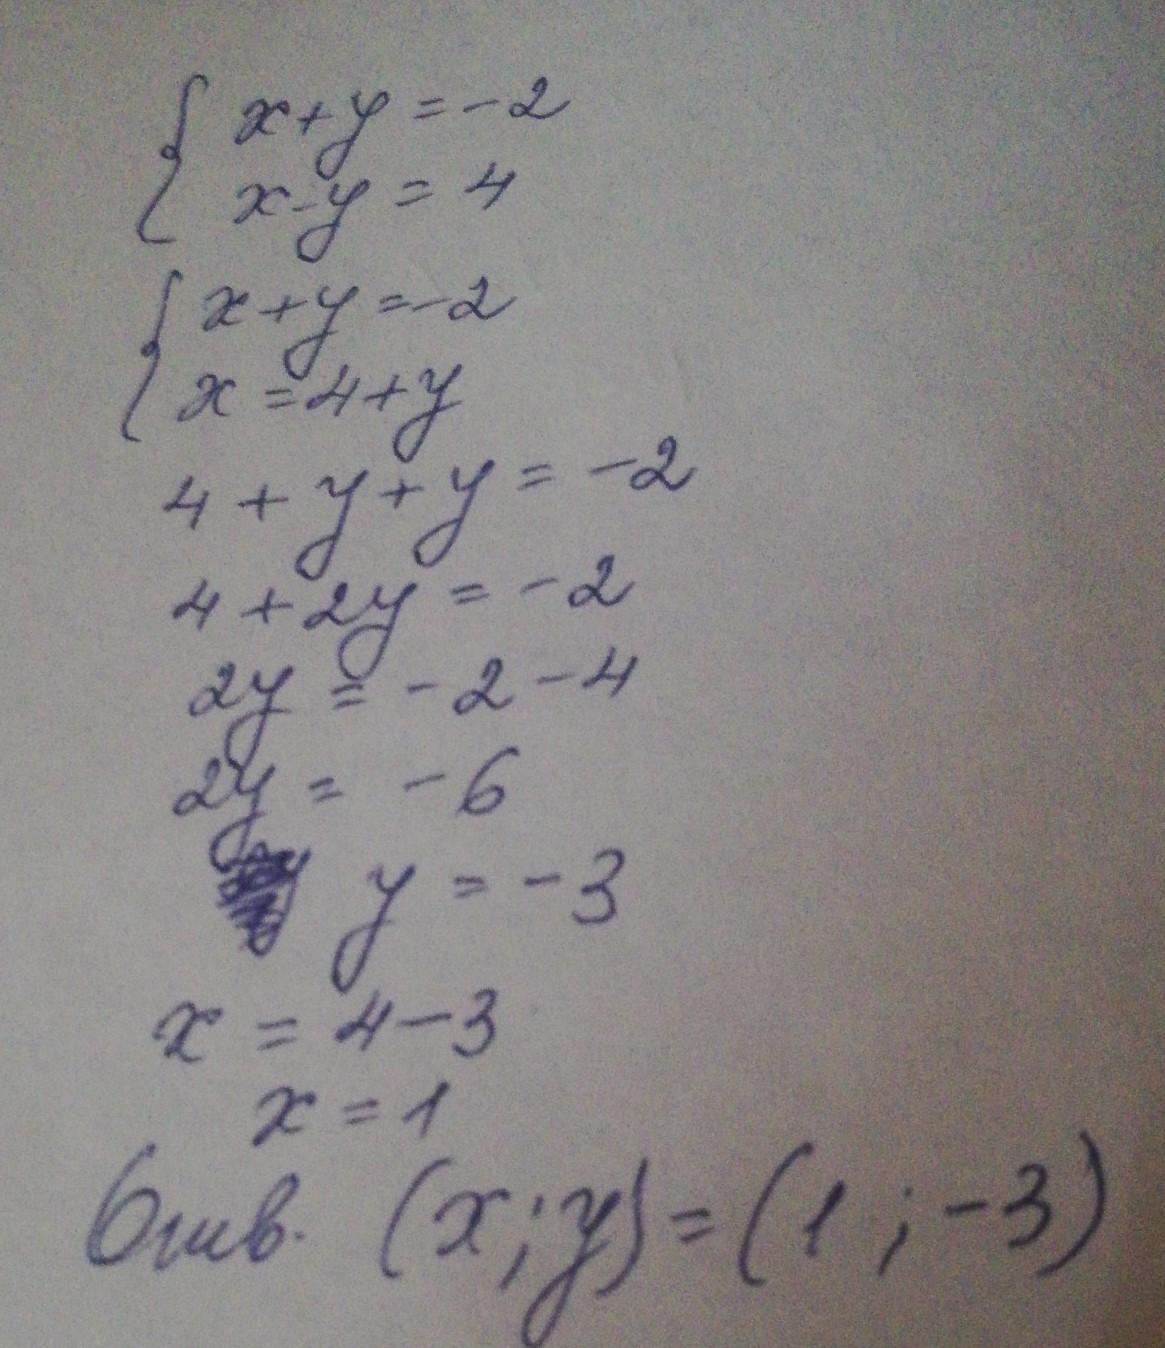 { x+y=-2
x-y=4
{ x+y=-2
x=4+y
4+y+y=-2
4+2y=-2
2y=-2-4
2y=-6
y=-3
x=4-3
x=1
Отв. (x;y)=(1;-3)